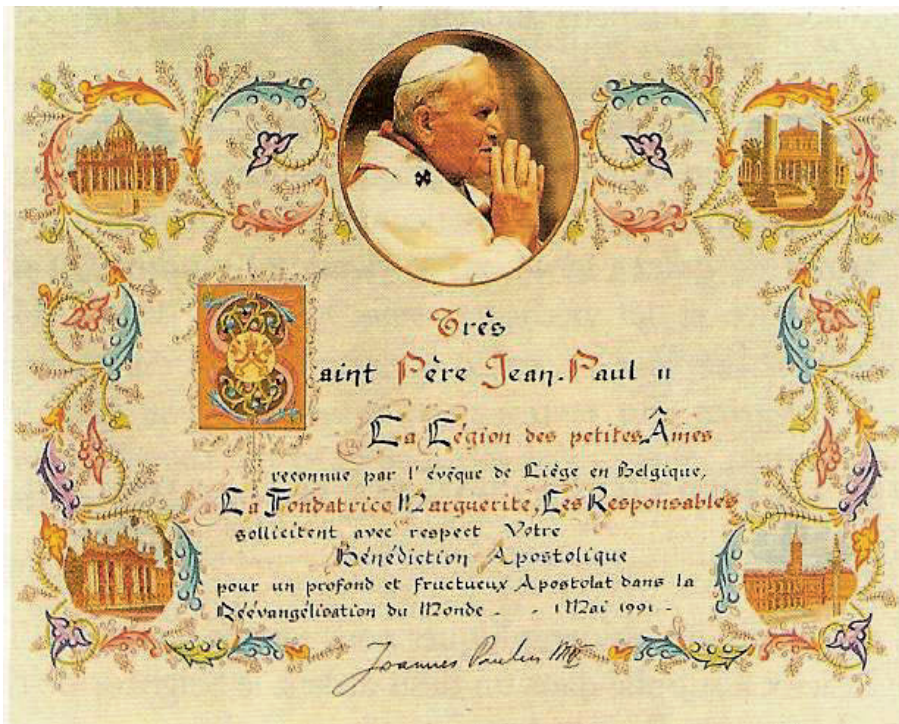 Très
Saint Père Jean-Paul II
La Légion des petites Âmes
reconnue par l'évêque de Liége en Belgique,
La Fondatrice Marguerite, Les Responsables
sollicitent avec respect Votre
Bénédiction Apostolique
pour un profond et fructueux Apostolat dans la
Réévangélisation du Monde - - 1 Mai 1991 -
Joannes Paulus